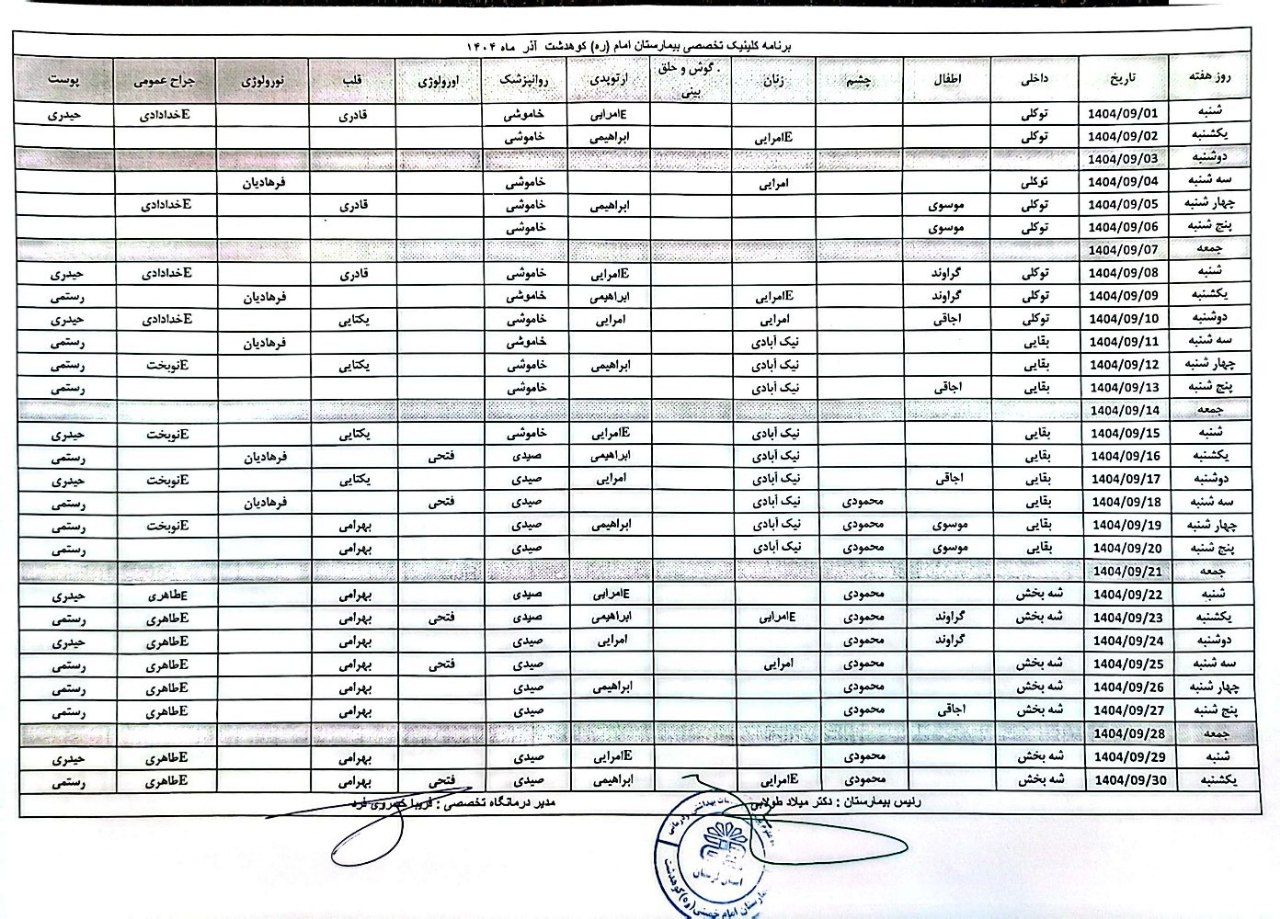 برنامه کلینیک تخصصی بیمارستان امام (ره) کوهدشت آذر ماه ۱۴۰۴
روز هفته تاریخ داخلی اطفال چشم زنان گوش و حلق بینی ارتوپدی روانپزشک اورولوژی قلب نورولوژی جراح عمومی پوست
شنبه 1404/09/01 توکلی Eامرایی خاموشی قادری Eخدادادی حیدری
یکشنبه 1404/09/02 توکلی Eامرایی ابراهیمی خاموشی
دوشنبه 1404/09/03
سه شنبه 1404/09/04 توکلی امرایی خاموشی فرهادیان
چهار شنبه 1404/09/05 توکلی موسوی ابراهیمی خاموشی قادری Eخدادادی
پنج شنبه 1404/09/06 توکلی موسوی خاموشی
جمعه 1404/09/07
شنبه 1404/09/08 توکلی گراوند Eامرایی خاموشی قادری Eخدادادی حیدری
یکشنبه 1404/09/09 توکلی گراوند Eامرایی ابراهیمی خاموشی فرهادیان رستمی
دوشنبه 1404/09/10 توکلی اجاقی امرایی امرایی خاموشی یکتایی Eخدادادی حیدری
سه شنبه 1404/09/11 بقایی نیک آبادی خاموشی فرهادیان رستمی
چهار شنبه 1404/09/12 بقایی نیک آبادی ابراهیمی خاموشی یکتایی Eنوبخت رستمی
پنج شنبه 1404/09/13 بقایی اجاقی نیک آبادی خاموشی رستمی
جمعه 1404/09/14
شنبه 1404/09/15 بقایی نیک آبادی Eامرایی خاموشی یکتایی Eنوبخت حیدری
یکشنبه 1404/09/16 بقایی نیک آبادی ابراهیمی صیدی فتحی فرهادیان رستمی
دوشنبه 1404/09/17 بقایی اجاقی نیک آبادی امرایی صیدی یکتایی Eنوبخت حیدری
سه شنبه 1404/09/18 بقایی محمودی نیک آبادی صیدی فتحی فرهادیان رستمی
چهار شنبه 1404/09/19 بقایی موسوی محمودی نیک آبادی ابراهیمی صیدی بهرامی Eنوبخت رستمی
پنج شنبه 1404/09/20 بقایی موسوی محمودی نیک آبادی صیدی بهرامی رستمی
جمعه 1404/09/21
شنبه 1404/09/22 شه بخش محمودی Eامرایی صیدی بهرامی Eطاهری حیدری
یکشنبه 1404/09/23 شه بخش گراوند محمودی Eامرایی ابراهیمی صیدی فتحی بهرامی Eطاهری رستمی
دوشنبه 1404/09/24 گراوند محمودی امرایی صیدی بهرامی Eطاهری حیدری
سه شنبه 1404/09/25 شه بخش محمودی امرایی صیدی فتحی بهرامی Eطاهری رستمی
چهار شنبه 1404/09/26 شه بخش محمودی ابراهیمی صیدی بهرامی Eطاهری رستمی
پنج شنبه 1404/09/27 شه بخش اجاقی محمودی صیدی بهرامی Eطاهری رستمی
جمعه 1404/09/28
شنبه 1404/09/29 شه بخش محمودی Eامرایی صیدی بهرامی Eطاهری حیدری
یکشنبه 1404/09/30 شه بخش محمودی Eامرایی ابراهیمی صیدی فتحی بهرامی Eطاهری رستمی
رئیس بیمارستان : دکتر میلاد طولابی مدیر درمانگاه تخصصی : فریبا خسروی فرد
استان لرستان
بیمارستان امام خمینی (ره) کوهدشت